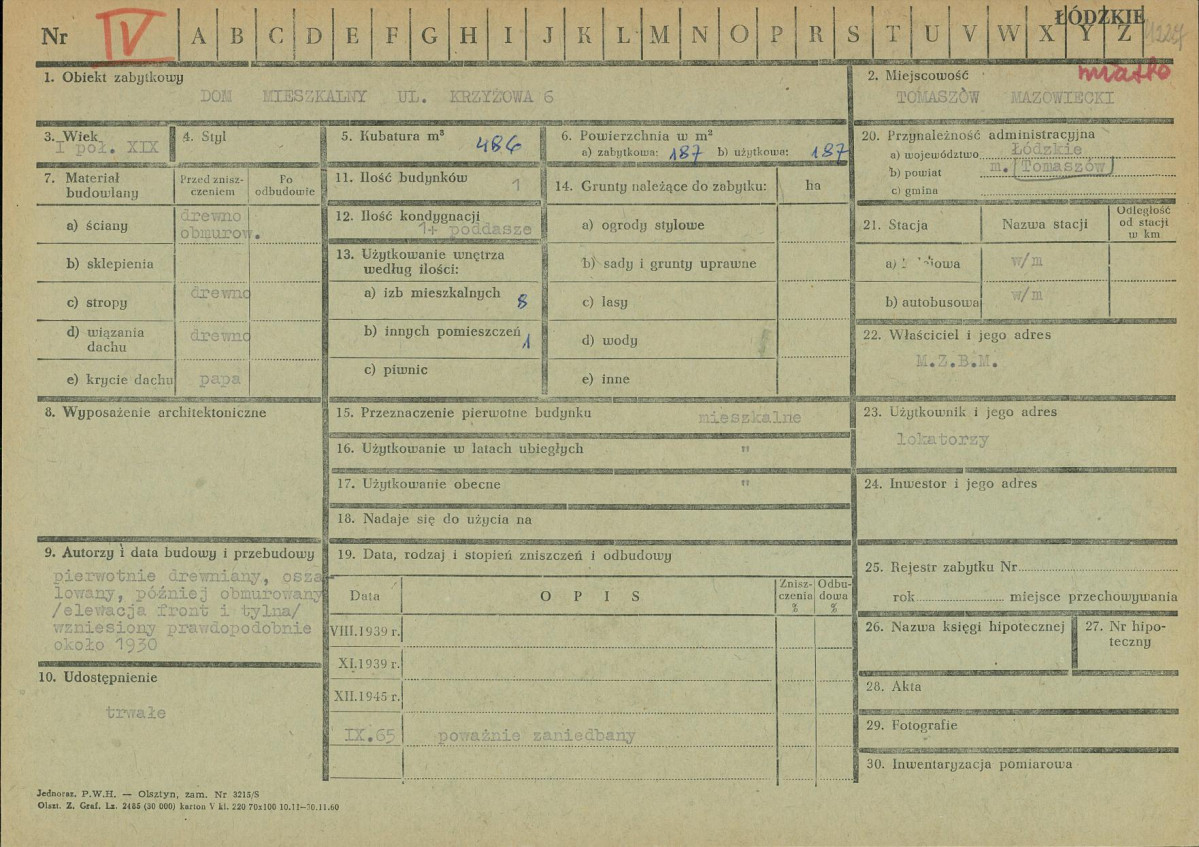 ŁÓDZKIE
Nr IV A B C D E F G H I J K L M N O P R S T U V W X Y Z
miasto
1. Obiekt zabytkowy
DOM MIESZKALNY UL. KRZYŻOWA 6
2. Miejscowość
TOMASZÓW MAZOWIECKI
3. Wiek
I poł. XIX
4. Styl
5. Kubatura m³ 486
6. Powierzchnia w m²
a) zabytkowa: 187 b) użytkowa: 187
20. Przynależność administracyjna
a) województwo Łódzkie
b) powiat m. Tomaszów
c) gmina
7. Materiał budowlany
Przed znisz-
czeniem
Po
odbudowie
a) ściany drewno
obmurow.
b) sklepienia
c) stropy drewno
d) wiązania
dachu drewno
e) krycie dachu papa
11. Ilość budynków 1
12. Ilość kondygnacji
1+ poddasze
13. Użytkowanie wnętrza
według ilości:
a) izb mieszkalnych 8
b) innych pomieszczeń 1
c) piwnic
14. Grunty należące do zabytku: ha
a) ogrody stylowe
b) sady i grunty uprawne
c) lasy
d) wody
e) inne
21. Stacja Nazwa stacji
Odległość
od stacji
w km
a) w/m
b) autobusowa w/m
22. Właściciel i jego adres
M.Z.B.M.
8. Wyposażenie architektoniczne
15. Przeznaczenie pierwotne budynku mieszkalne
16. Użytkowanie w latach ubiegłych "
17. Użytkowanie obecne "
18. Nadaje się do użycia na
23. Użytkownik i jego adres
lokatorzy
24. Inwestor i jego adres
9. Autorzy i data budowy i przebudowy
pierwotnie drewniany, osza
lowany, później obmurowany
/elewacja front i tylna/
wzniesiony prawdopodobnie
około 1930
10. Udostępnienie
trwałe
19. Data, rodzaj i stopień zniszczeń i odbudowy
Data O P I S
Znisz-
czenia
%
Odbu-
dowa
%
VIII.1939 r.
XI.1939 r.
XII.1945 r.
IX.65 poważnie zaniedbany
25. Rejestr zabytku Nr
rok miejsce przechowywania
26. Nazwa księgi hipotecznej
27. Nr hipo-
teczny
28. Akta
29. Fotografie
30. Inwentaryzacja pomiarowa
Jednoraz. P.W.H. — Olsztyn, zam. Nr 3215/S
Olszt. Z. Graf. Lz. 2485 (30 000) karton V kl. 220 70x100 10.11—30.11.60